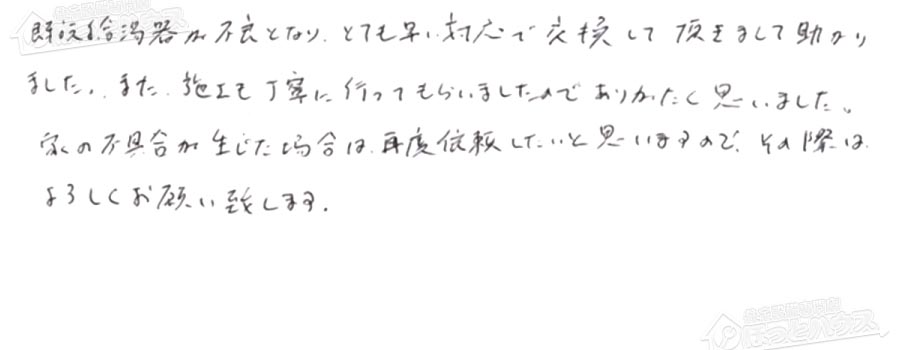 既設給湯器が不良となり、とても早い対応で交換して頂きまして助かり
ました。また、施工も丁寧に行ってもらいましたのでありがたく思いました。
家の不具合が生じた場合は、再度依頼したいと思いますので、その際は
よろしくお願い致します。
ほっとハウス